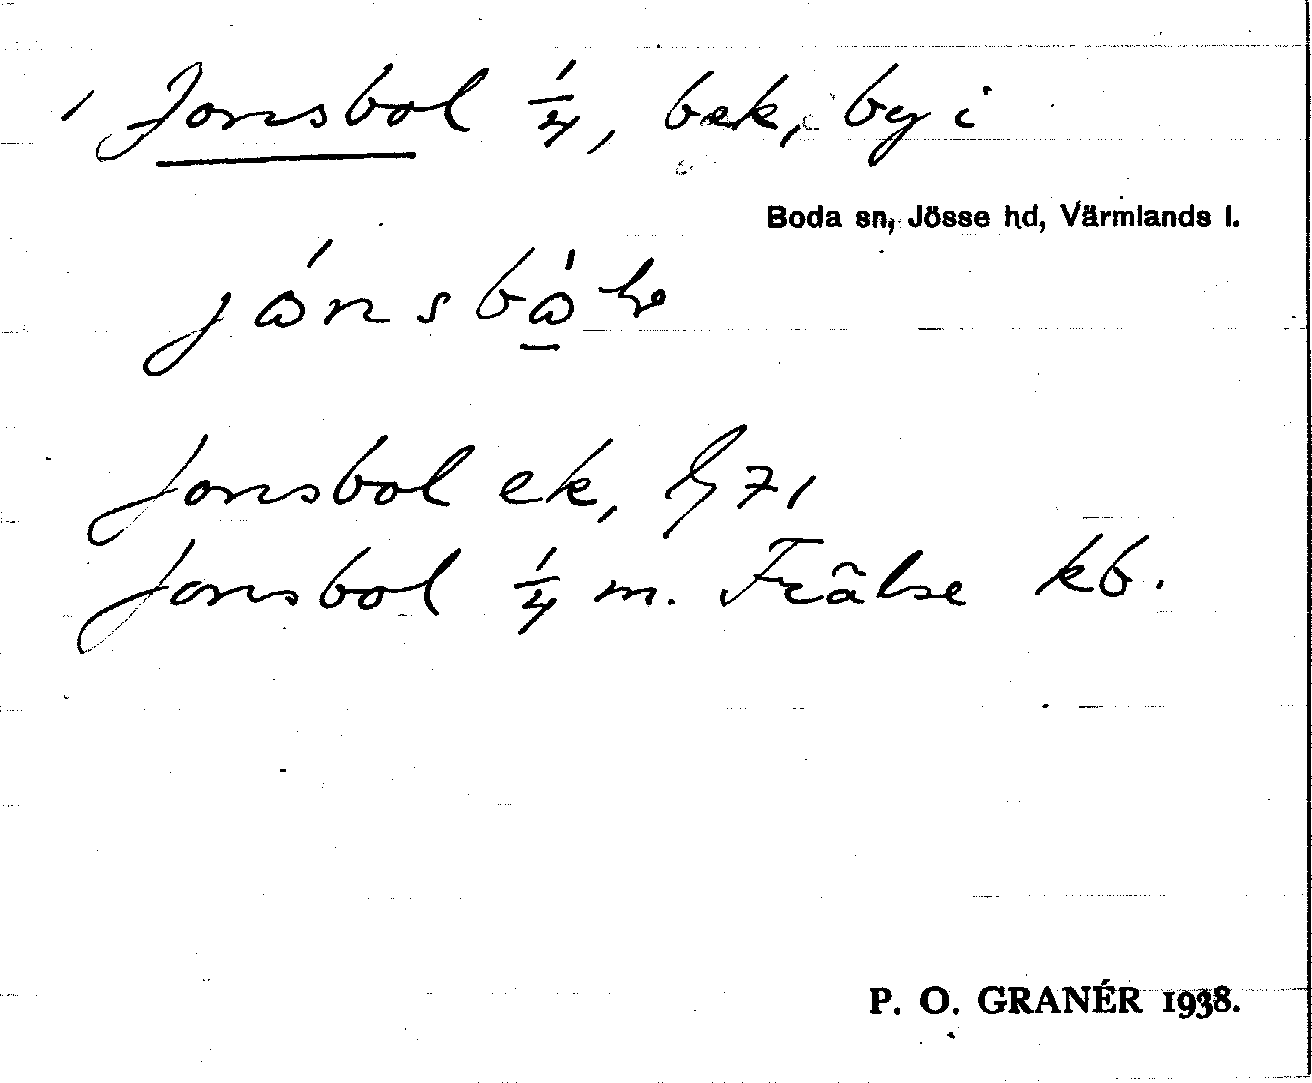 Jonsbol 1/4, bek, by i
Boda sn, Jösse hd, Värmlands l.
Jonsbol ek, G 71
Jonsbol 1/4 m. Frälse kb.
P. O. GRANÉR 1938.